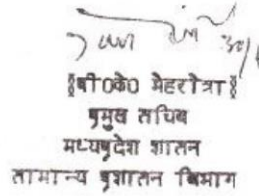 30/
§बी0के0 मेहरोत्रा§
प्रमुख सचिव
मध्यप्रदेश शासन
सामान्य प्रशासन विभाग